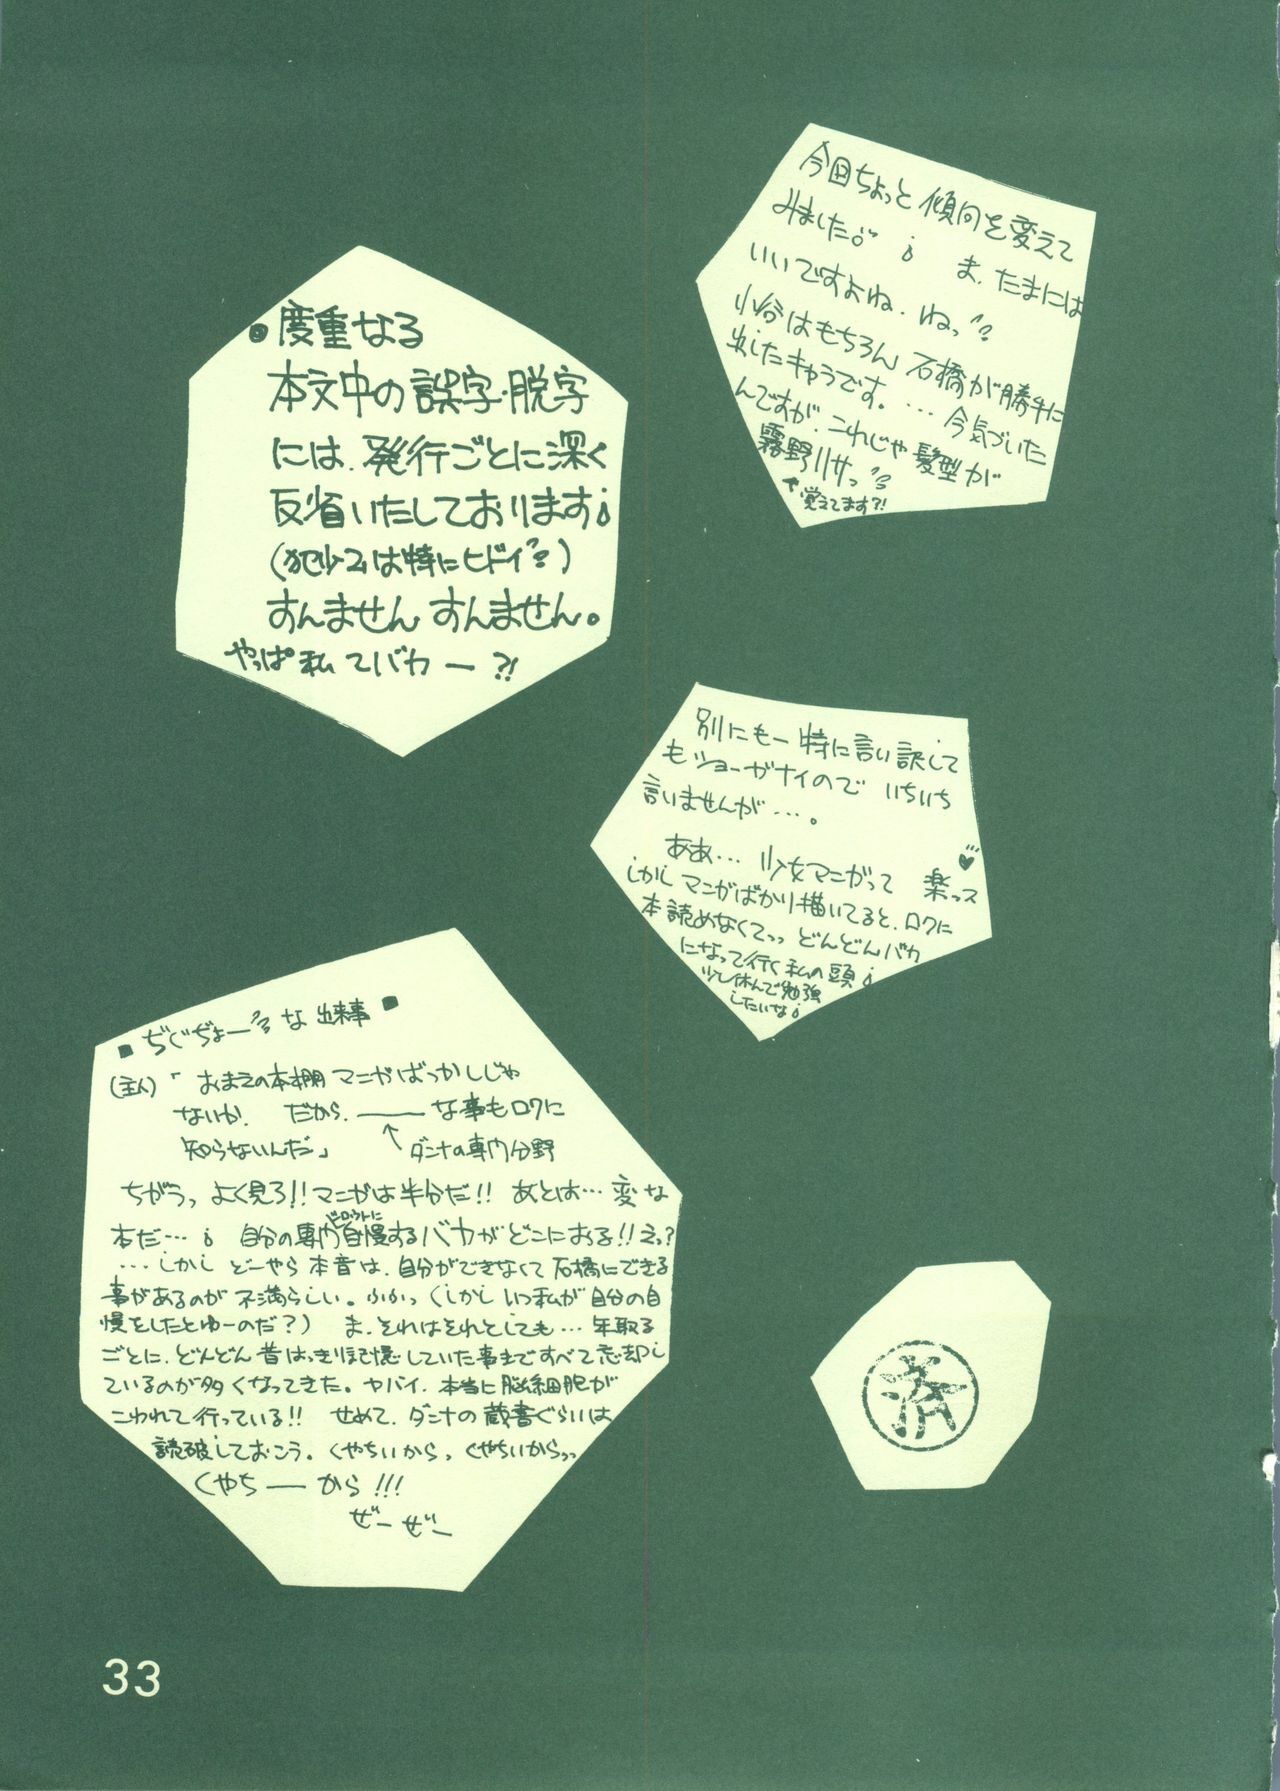 今回ちょっと傾向を変えて
みました。 ま、たまには
いいですよね、ねっ
小谷はもちろん 石橋が勝手に
出したキャラです。… 今気づいた
んですが、これじゃ髪型が
霧野リサっ
↑覚えてます?!
●度重なる
本文中の誤字・脱字
には、発行ごとに深く
反省いたしております
(犯少2は特にヒドイ)
すんません すんません。
やっぱ私てバカー?!
別にもー特に言い訳して
もショーがナイので いちいち
言いませんが…。
ああ… 少女マンガって 楽っス♥
しかしマンガばかり描いてると、ロクに
本読めなくてっっ どんどんバカ
になって行く私の頭
少し休んで勉強
したいな
■ぢぐぢょーな出来事■
(主人)「おまえの本棚マンガばっかしじゃ
ないか。 だから、――な事もロクに
知らないんだ」 ↑ダンナの専門分野
ちがうっ よく見ろ!!マンガは半分だ!! あとは… 変な
本だ… 自分の専門シロウトに自慢するバカがどこにおる!!えっ?
…しかし どーやら本音は、自分ができなくて石橋にできる
事があるのが不満らしい。ふふっ(しかしいつ私が自分の自
慢をしたとゆーのだ?) ま、それはそれとしても… 年取る
ごとに、どんどん昔はっきり記憶していた事まですべて忘却し
ているのが多くなってきた。ヤバイ、本当に脳細胞が
こわれて行っている!! せめて、ダンナの蔵書ぐらいは
読破しておこう。くやちいからっ くやちいからっっ
くやちーから!!!
ぜーぜー
済
33